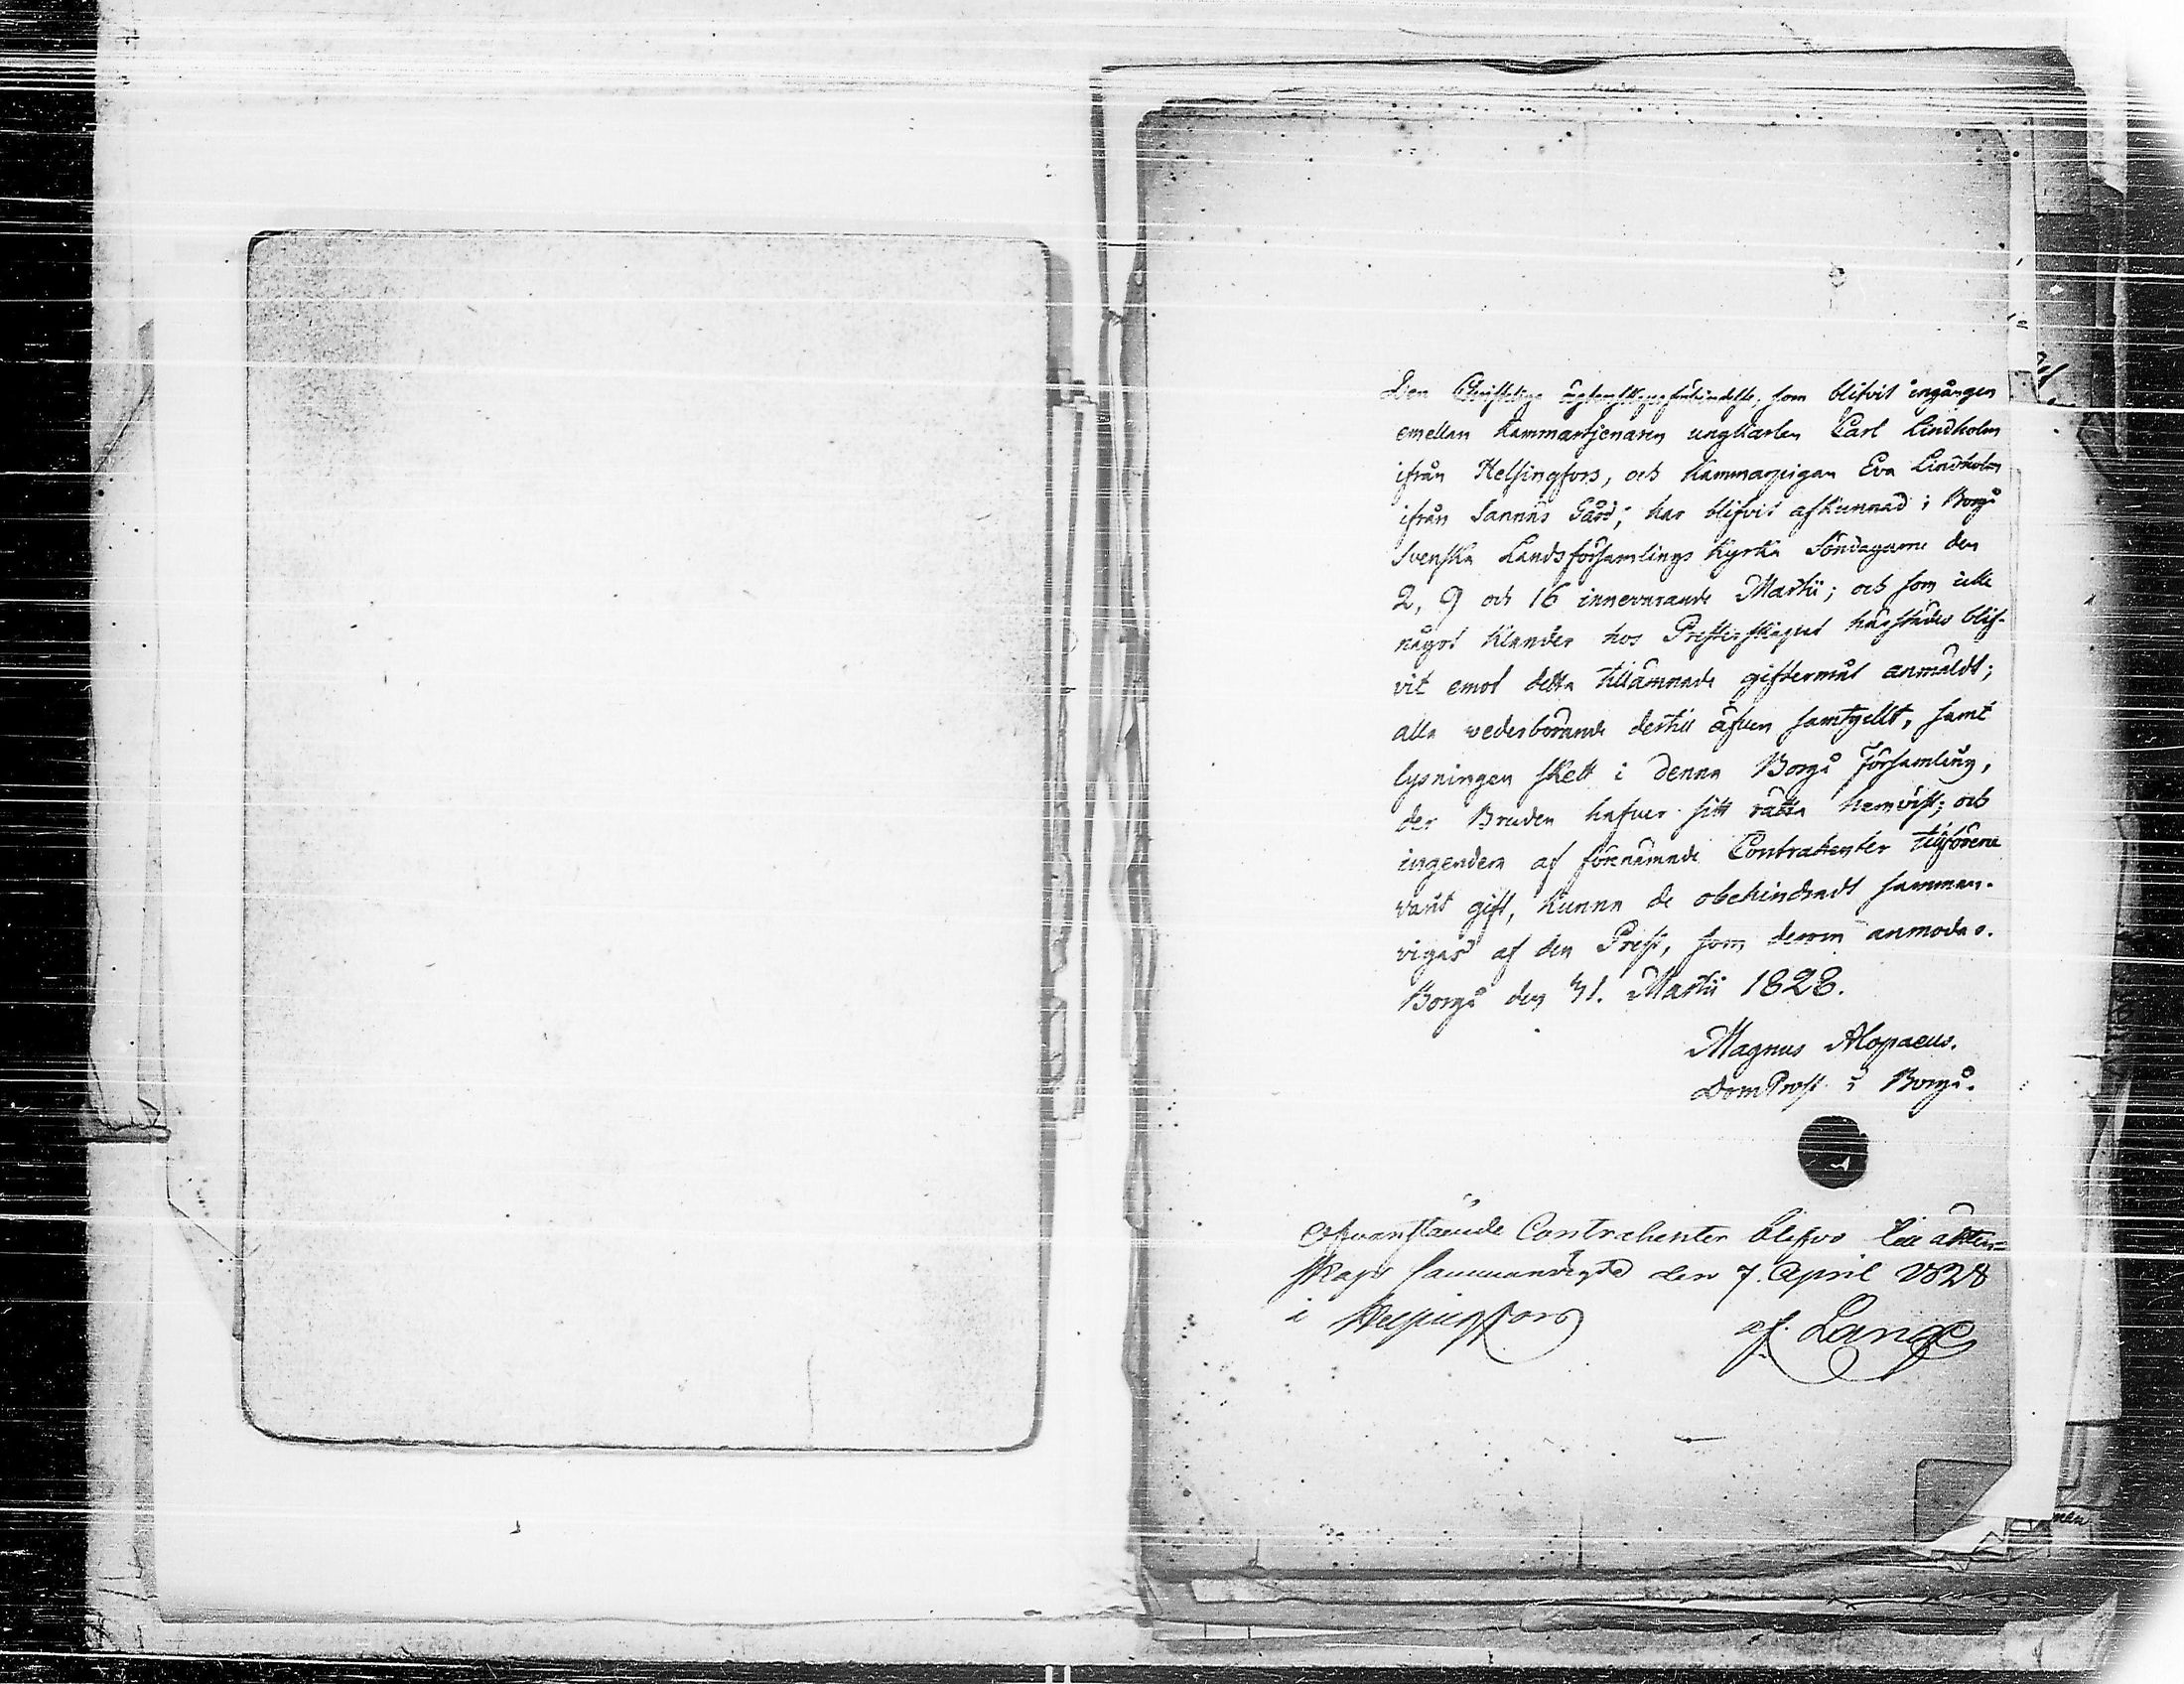 Den Christeliga ägtenskapsförbindelse, som blifvit ingången
emellan Kammartjenaren ungkarlen Carl Lindholm
ifrån Helsingfors, och Kammarpigan Eva Lindholm
ifrån Sannäs Gård, har blifvit afkunnad i Borgå
Svenska Landsförsamlings Kyrka Söndagarne den
2, 9 och 16 innevarande Martii; och som icke
något klander hos Presterskapet härstädes blif-
vit emot detta tillämnade giftermål anmäldt;
alla vederbörande dertill äfven samtyckt, samt
lysningen skett i denna Borgå Församling,
der Bruden hafver sitt rätta hemvist; och
ingendera af förenämnde Contrahenter tillförene
varit gift, kunna de obehindradt samman-
vigas af den Prest, som derom anmodas.
Borgå den 31. Martii 1828.
Magnus Alopaeus.
DomProst i Borgå.
Ofvanstående Contrahenter blefvo till äkten=
skaps sammanvigde den 7. April 1828
i Helsingfors
af Lange